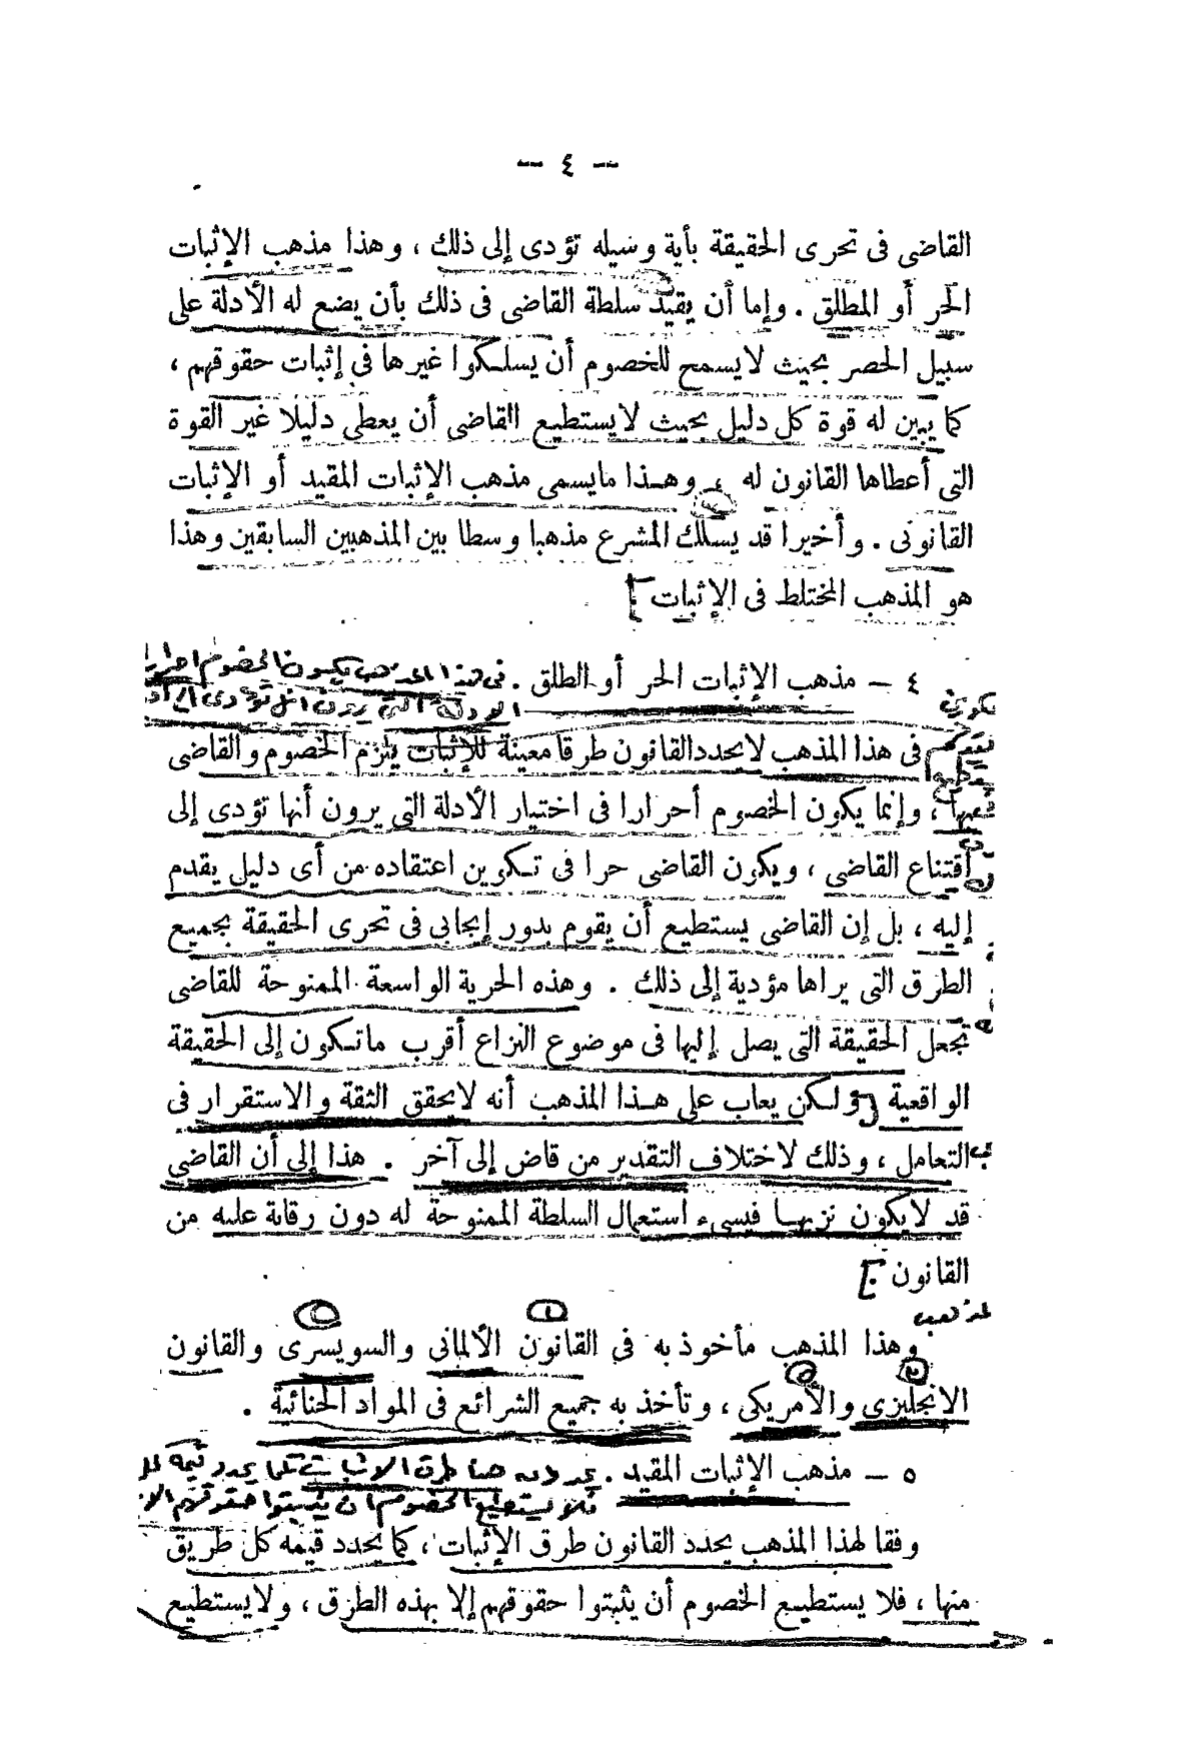 -- ٤ --
القاضى فى تحرى الحقيقة بأية وسيله تؤدى إلى ذلك ، وهذا مذهب الإثبات
الحر أو المطلق . وإما أن يقيد سلطة القاضى فى ذلك بأن يضع له الأدلة على
سبيل الحصر بحيث لايسمح للخصوم أن يسلكوا غيرها فى إثبات حقوقهم ،
كما يبين له قوة كل دليل بحيث لايستطيع القاضى أن يعطى دليلا غير القوة
التى أعطاها القانون له ، وهذا مايسمى مذهب الإثبات المقيد أو الإثبات
القانونى . وأخيرا قد يسلك المشرع مذهبا وسطا بين المذهبين السابقين وهذا
هو المذهب المختلط فى الإثبات ]
٤ — مذهب الإثبات الحر أو الطلق . فى هذا المذهب يكون الخصوم احرار
الادلة التى يرون انها تؤدى الى
فى هذا المذهب لايحدد القانون طرقا معينة للإثبات يلتزم الخصوم والقاضى
، وإنما يكون الخصوم أحرارا فى اختيار الأدلة التى يرون أنها تؤدى إلى
اقتناع القاضى ، ويكون القاضى حرا فى تكوين اعتقاده من أى دليل يقدم
إليه ، بل إن القاضى يستطيع أن يقوم بدور إيجابى فى تحرى الحقيقة بجميع
الطرق التى يراها مؤدية إلى ذلك . وهذه الحرية الواسعة الممنوحة للقاضى
تجعل الحقيقة التى يصل إليها فى موضوع النزاع أقرب ماتكون إلى الحقيقة
الواقعية ولكن يعاب على هذا المذهب أنه لايحقق الثقة والاستقرار فى
التعامل ، وذلك لاختلاف التقدير من قاض إلى آخر . هذا إلى أن القاضى
قد لايكون نزيها فيسىء استعمال السلطة الممنوحة له دون رقابة عليه من
القانون . ]
وهذا المذهب مأخوذ به فى القانون الألمانى والسويسرى والقانون
الانجليزى والأمريكى ، وتأخذ به جميع الشرائع فى المواد الجنائية .
٥ — مذهب الإثبات المقيد . طرق الاثبات كما يحدد قيمة
فلا يستطيع الخصوم ان يثبتوا حقوقهم
وفقا لهذا المذهب يحدد القانون طرق الإثبات ، كما يحدد قيمة كل طريق
منها ، فلا يستطيع الخصوم أن يثبتوا حقوقهم إلا بهذه الطرق ، ولايستطيع